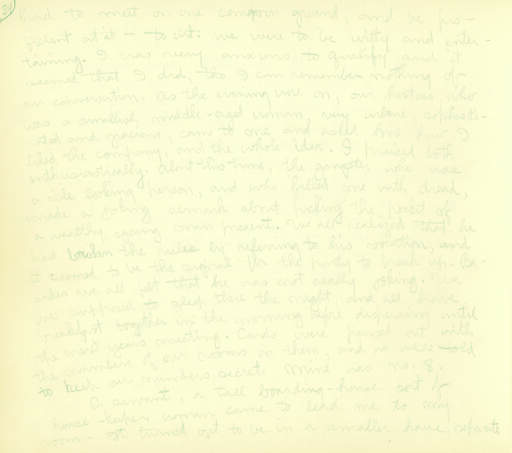 had to meet on one common ground, and be pro-
ficient at it - to wit: we were to be witty and enter-
taining. I was very anxious to qualify and it
seemed that I did, tho I can remember nothing of
our conversation. As the evening wore on, our hostess, who
was a smallish, middle-aged woman, very urbane, sophisti-
cated and gracious, came to me and asked me how I
liked the company, and the whole idea. I praised both
enthusiastically. About this time, the gangster, who was
a vile looking person, and who filled me with dread,
made a joking remark about picking the pocket of
a wealthy young woman present. We all realized that he
had broken the rules by referring to his vocation, and
it seemed to be the signal for the party to break up. Be-
sides we all felt that he was not really joking. We
were supposed to sleep there the night and all have
breakfast together in the morning before dispersing until
the next years meeting. Cards were passed out with
the numbers of our rooms on them, and we were told
to keep our numbers secret. Mine was no. 8.
A servant, a tall boarding-house sort of
house-keeper woman came to lead me to my
room - it turned out to be in a smaller house separate